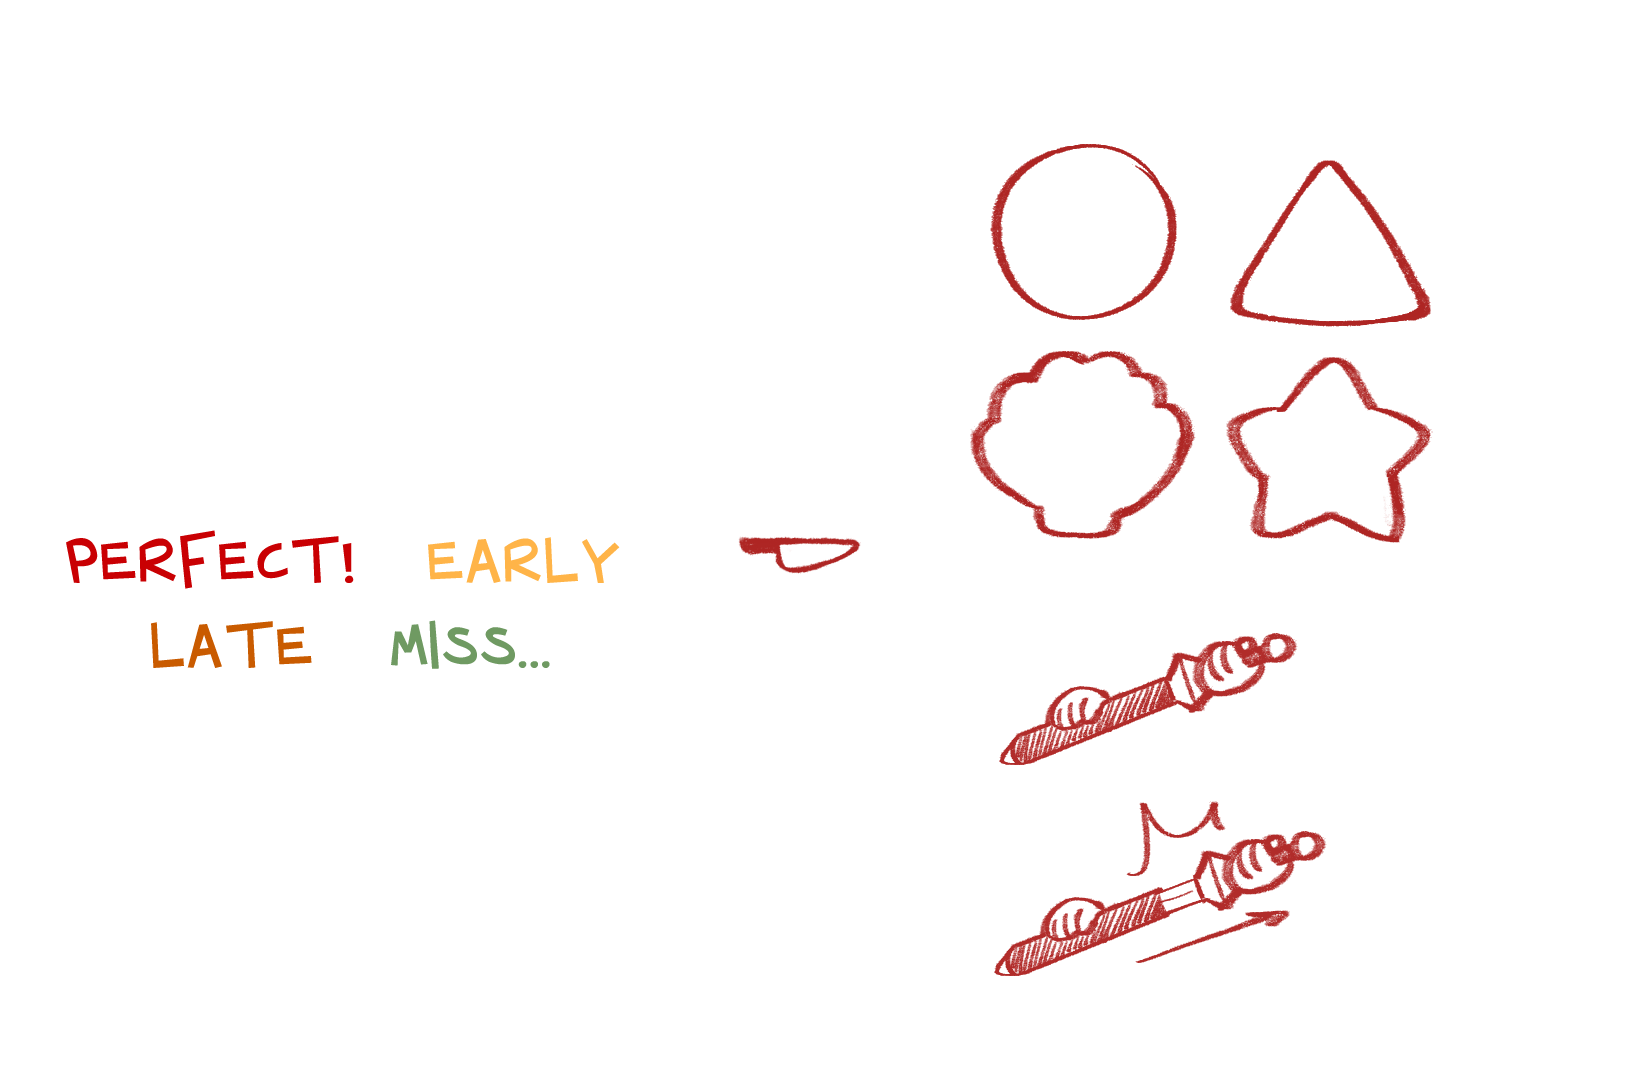 PERFECT! EARLY
LATE MISS...